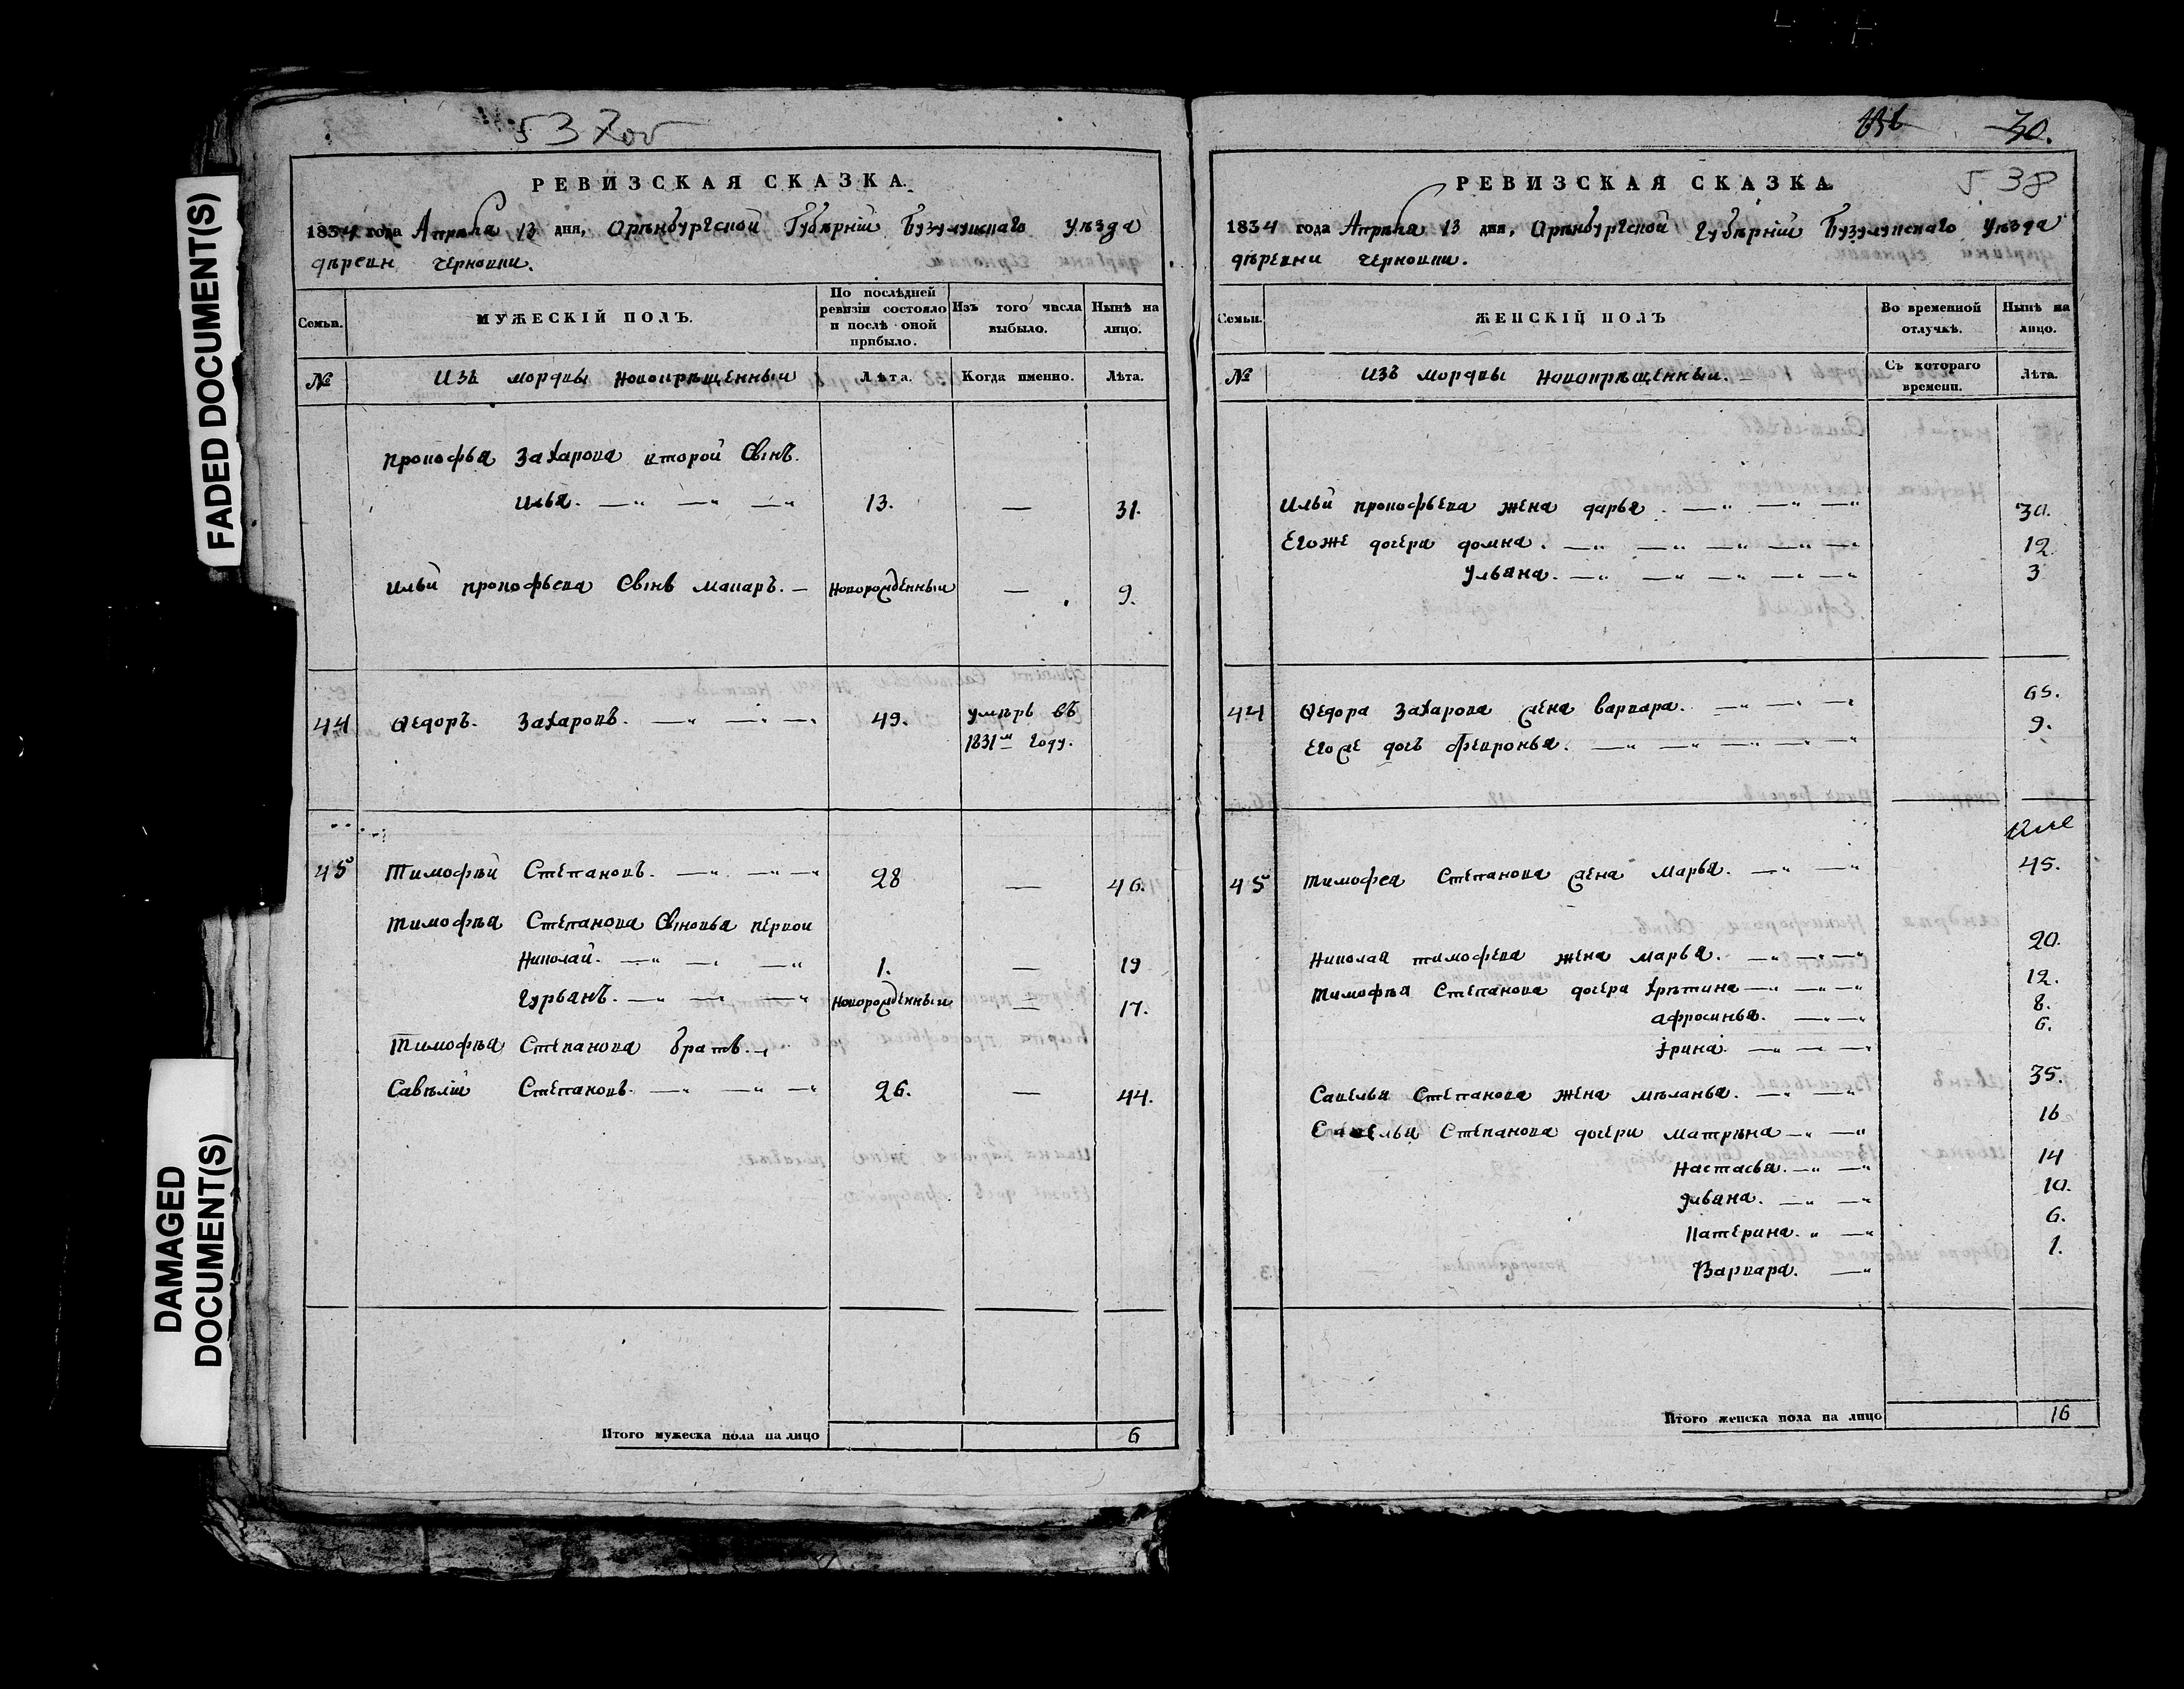 FADED DOCUMENT(S)
DAMAGED
DOCUMENT(S)
537об
РЕВИЗСКАЯ СКАЗКА.
1834 года Апреля 13 дня, Оренбургской Губерніи Бузулукскаго уезда
деревн черновки.
Семьи.
МУЖЕСКІЙ ПОЛЪ.
По послѣдней ревизіи состояло и послѣ оной прибыло.
Изъ того числа выбыло.
Нынѣ на лицо.
№
Изъ мордвы новокрещенныи
Лѣта.
Когда именно.
Лѣта.
прокофья Захарова второй Сынъ.
илья. 13. — 31.
ильи прокофьева Сынъ макаръ. — новорожденныи — 9.
44 Ѳедоръ. Захаровъ. 49. умеръ въ
1831м году.
45 Тимофѣй Степановъ. 28 — 46.
тимофѣя Степанова Сыновья первои
николай. 1. — 19
гурьянъ. новорожденныи — 17.
тимофѣя Степанова братъ.
Савѣлій Степановъ. 26. — 44.
Итого мужеска пола на лицо 6
70.
538
РЕВИЗСКАЯ СКАЗКА
1834 года Апреля 13 дня, Оренбургской губерніи Бузулукскаго уезда
деревни черновки.
Семьи.
ЖЕНСКІЙ ПОЛЪ
Во временной отлучкѣ.
Нынѣ на лицо.
№
изъ мордвы новокрещенныи.
Съ котораго времени.
Лѣта.
ильи прокофьева жена дарья. 30.
Егоже дочери домна. 12
ульяна. 3
44 Ѳедора Захарова жена варвара. 65.
егоже дочь февронья. 9.
45 тимофея Степанова жена марья. 45.
николая тимофева жена марья. 20.
тимофѣя Степанова дочера хрѣтина 12.
афросинья. 8.
ірина. 6.
Савельи Степанова жена мѣланья. 35.
Савельи Степанова дочери матрѣна 16
настасья. 14
ульяна. 10.
катерина. 6.
Варвара. 1.
Итого женска пола на лицо 16